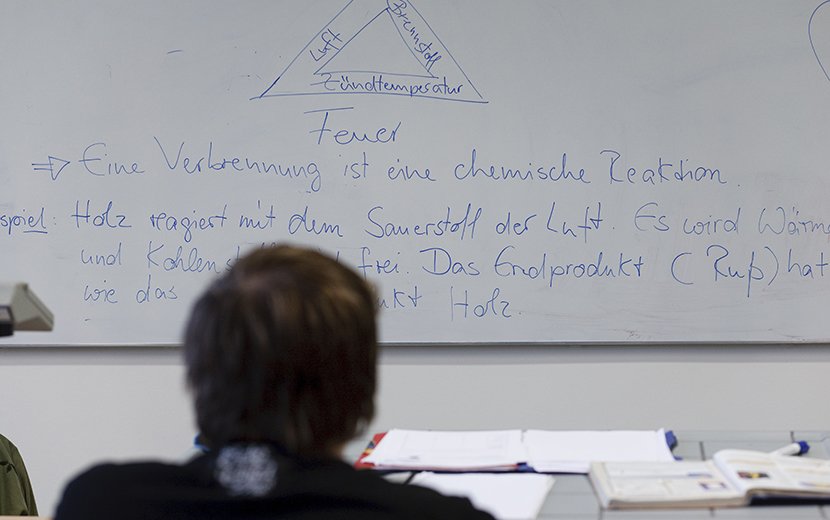 Luft Brennstoff
Zündtemperatur
Feuer
⇒ Eine Verbrennung ist eine chemische Reaktion.
spiel: Holz reagiert mit dem Sauerstoff der Luft. Es wird Wärm
und Kohlens frei. Das Endprodukt (Ruß) hat
wie das ukt Holz.